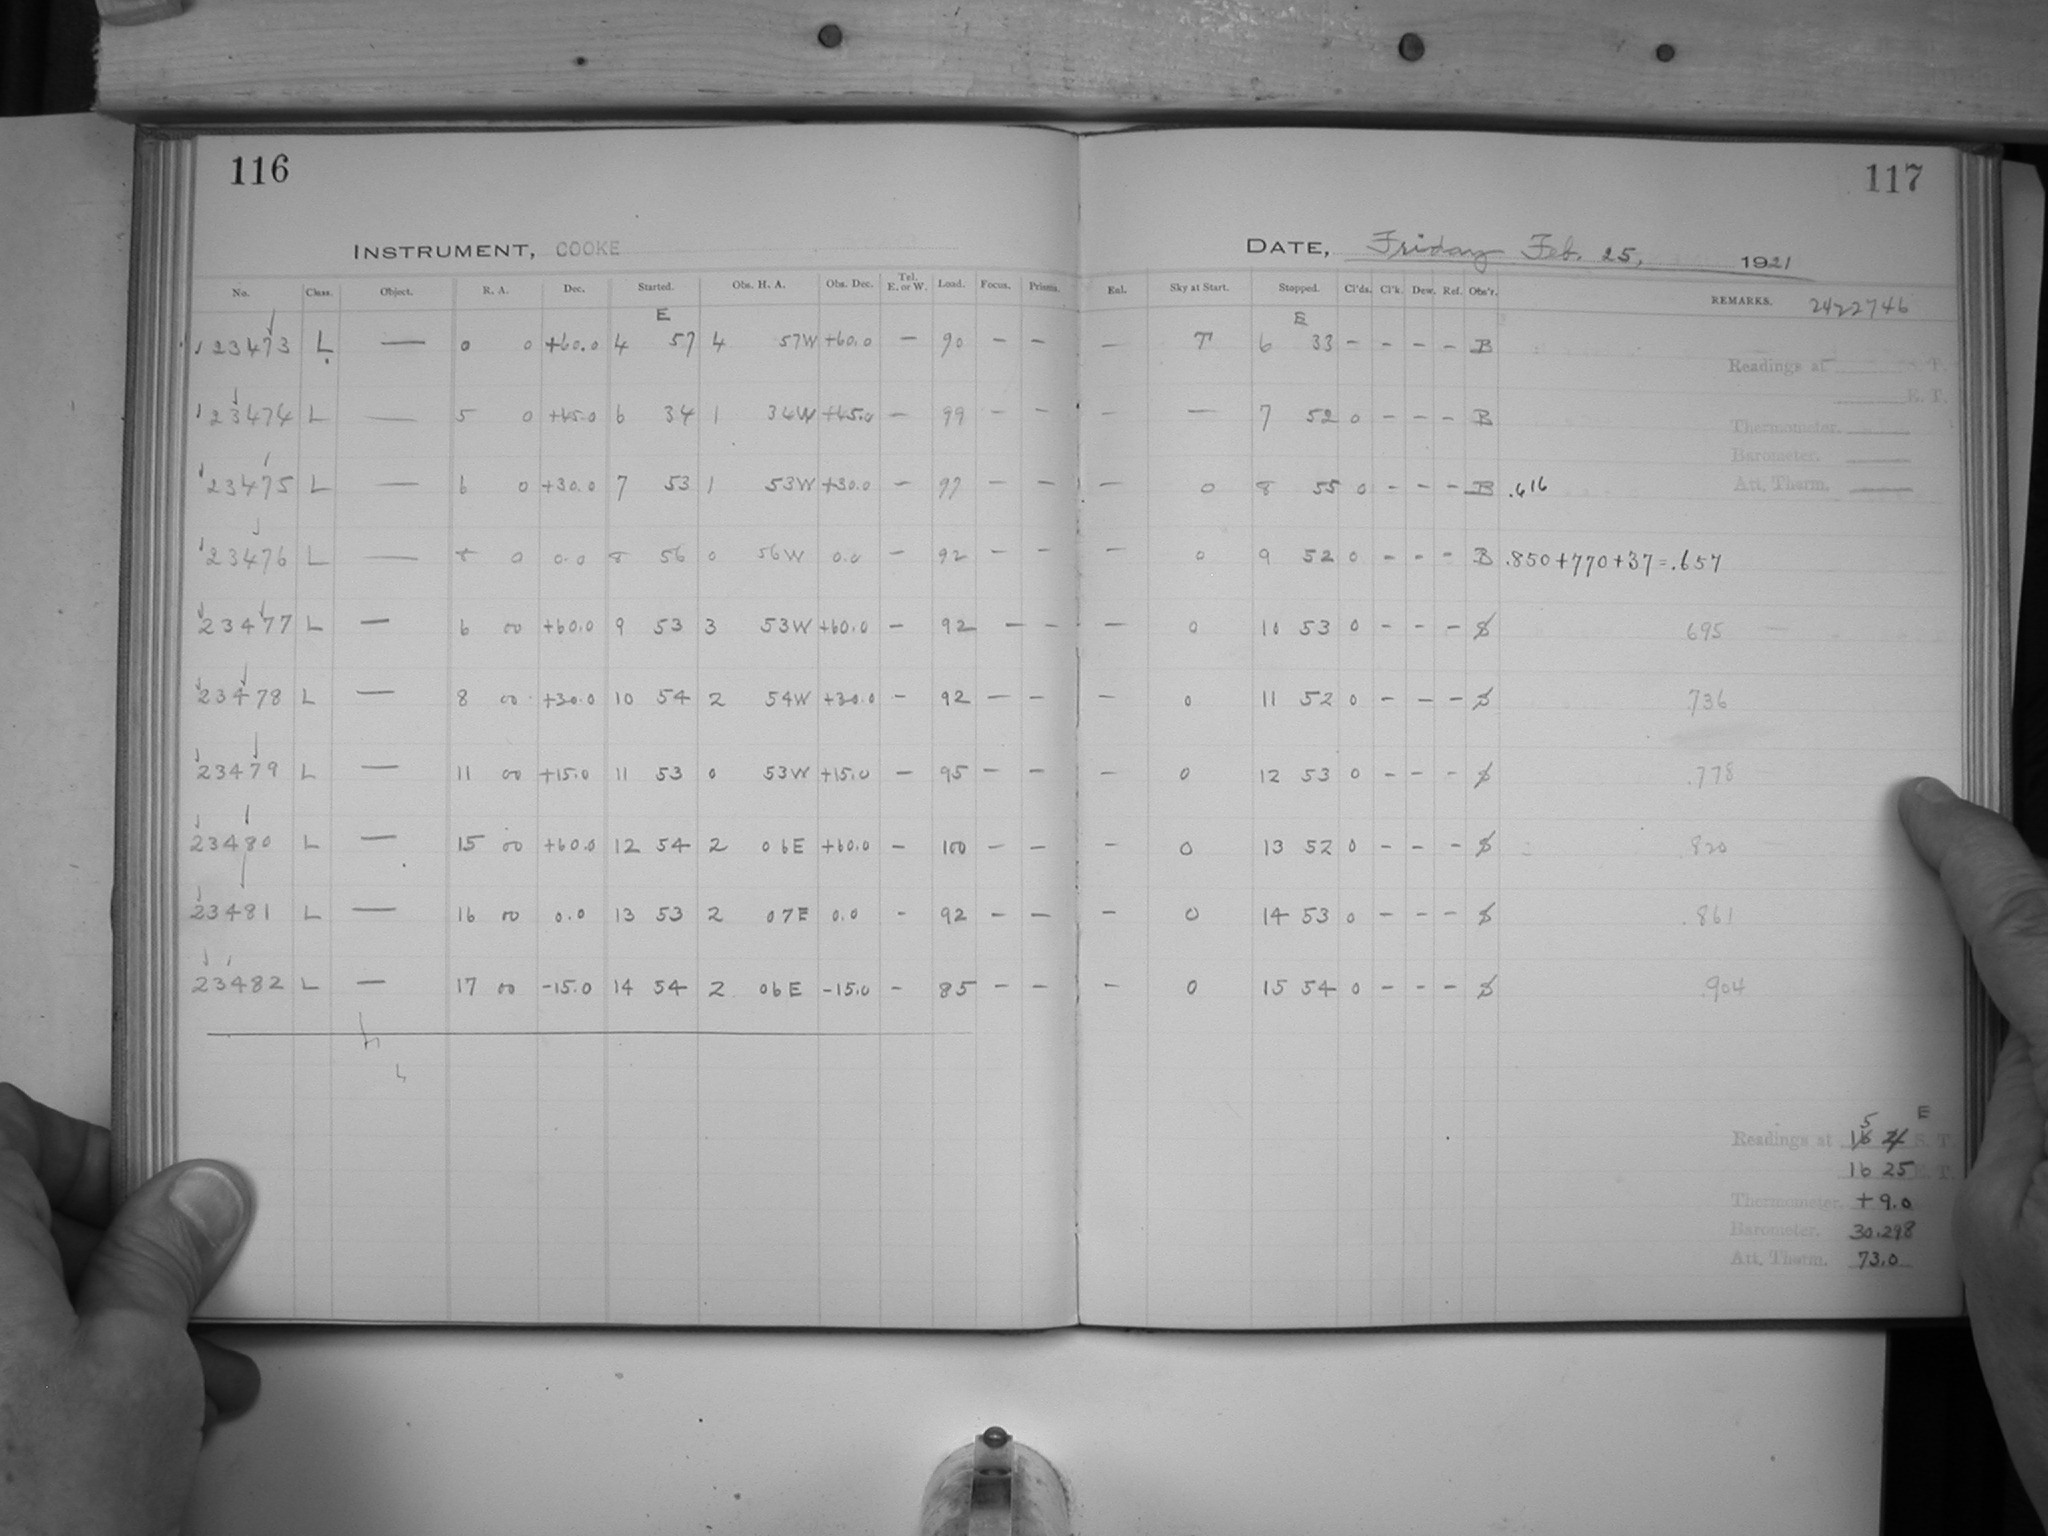 116
INSTRUMENT, COOKE
No. Class. Object. R. A. Dec. Started. Obs. H. A. Obs. Dec. Tel. E. or W. Load. Focus. Prisms.
E
23473 L — 0 0 +60.0 4 57 4 57W +60.0 — 90 – –
23474 L — 5 0 +45.0 6 34 1 34W +45.0 – 99 – –
23475 L — 6 0 +30.0 7 53 1 53W +30.0 – 97 – –
23476 L — 8 0 0.0 8 56 0 56W 0.0 – 92 – –
23477 L — 6 00 +60.0 9 53 3 53W +60.0 – 92 – –
23478 L — 8 00 +30.0 10 54 2 54W +30.0 – 92 – –
23479 L — 11 00 +15.0 11 53 0 53W +15.0 – 95 – –
23480 L — 15 00 +60.0 12 54 2 06E +60.0 – 100 – –
23481 L — 16 00 0.0 13 53 2 07E 0.0 – 92 – –
23482 L — 17 00 -15.0 14 54 2 06E -15.0 – 85 – –
117
DATE, Friday Feb. 25, 1921
Enl. Sky at Start. Stopped. Cl'ds. Cl'k. Dew. Ref. Obs'r. REMARKS. 2422746
E
— T 6 33 – – – – B
— — 7 52 0 – – – B
— 0 8 55 0 – – – B .616
— 0 9 52 0 – – – B .850+770+37=.657
— 0 10 53 0 – – – S 695
— 0 11 52 0 – – – S .736
— 0 12 53 0 – – – S .778
— 0 13 52 0 – – – S .820
— 0 14 53 0 – – – S .861
— 0 15 54 0 – – – S .904
Readings at S. T.
E. T.
Thermometer.
Barometer.
Att. Therm.
5 E
Readings at 16 S. T.
16 25 E. T.
Thermometer. +9.0
Barometer. 30.298
Att. Therm. 73.0